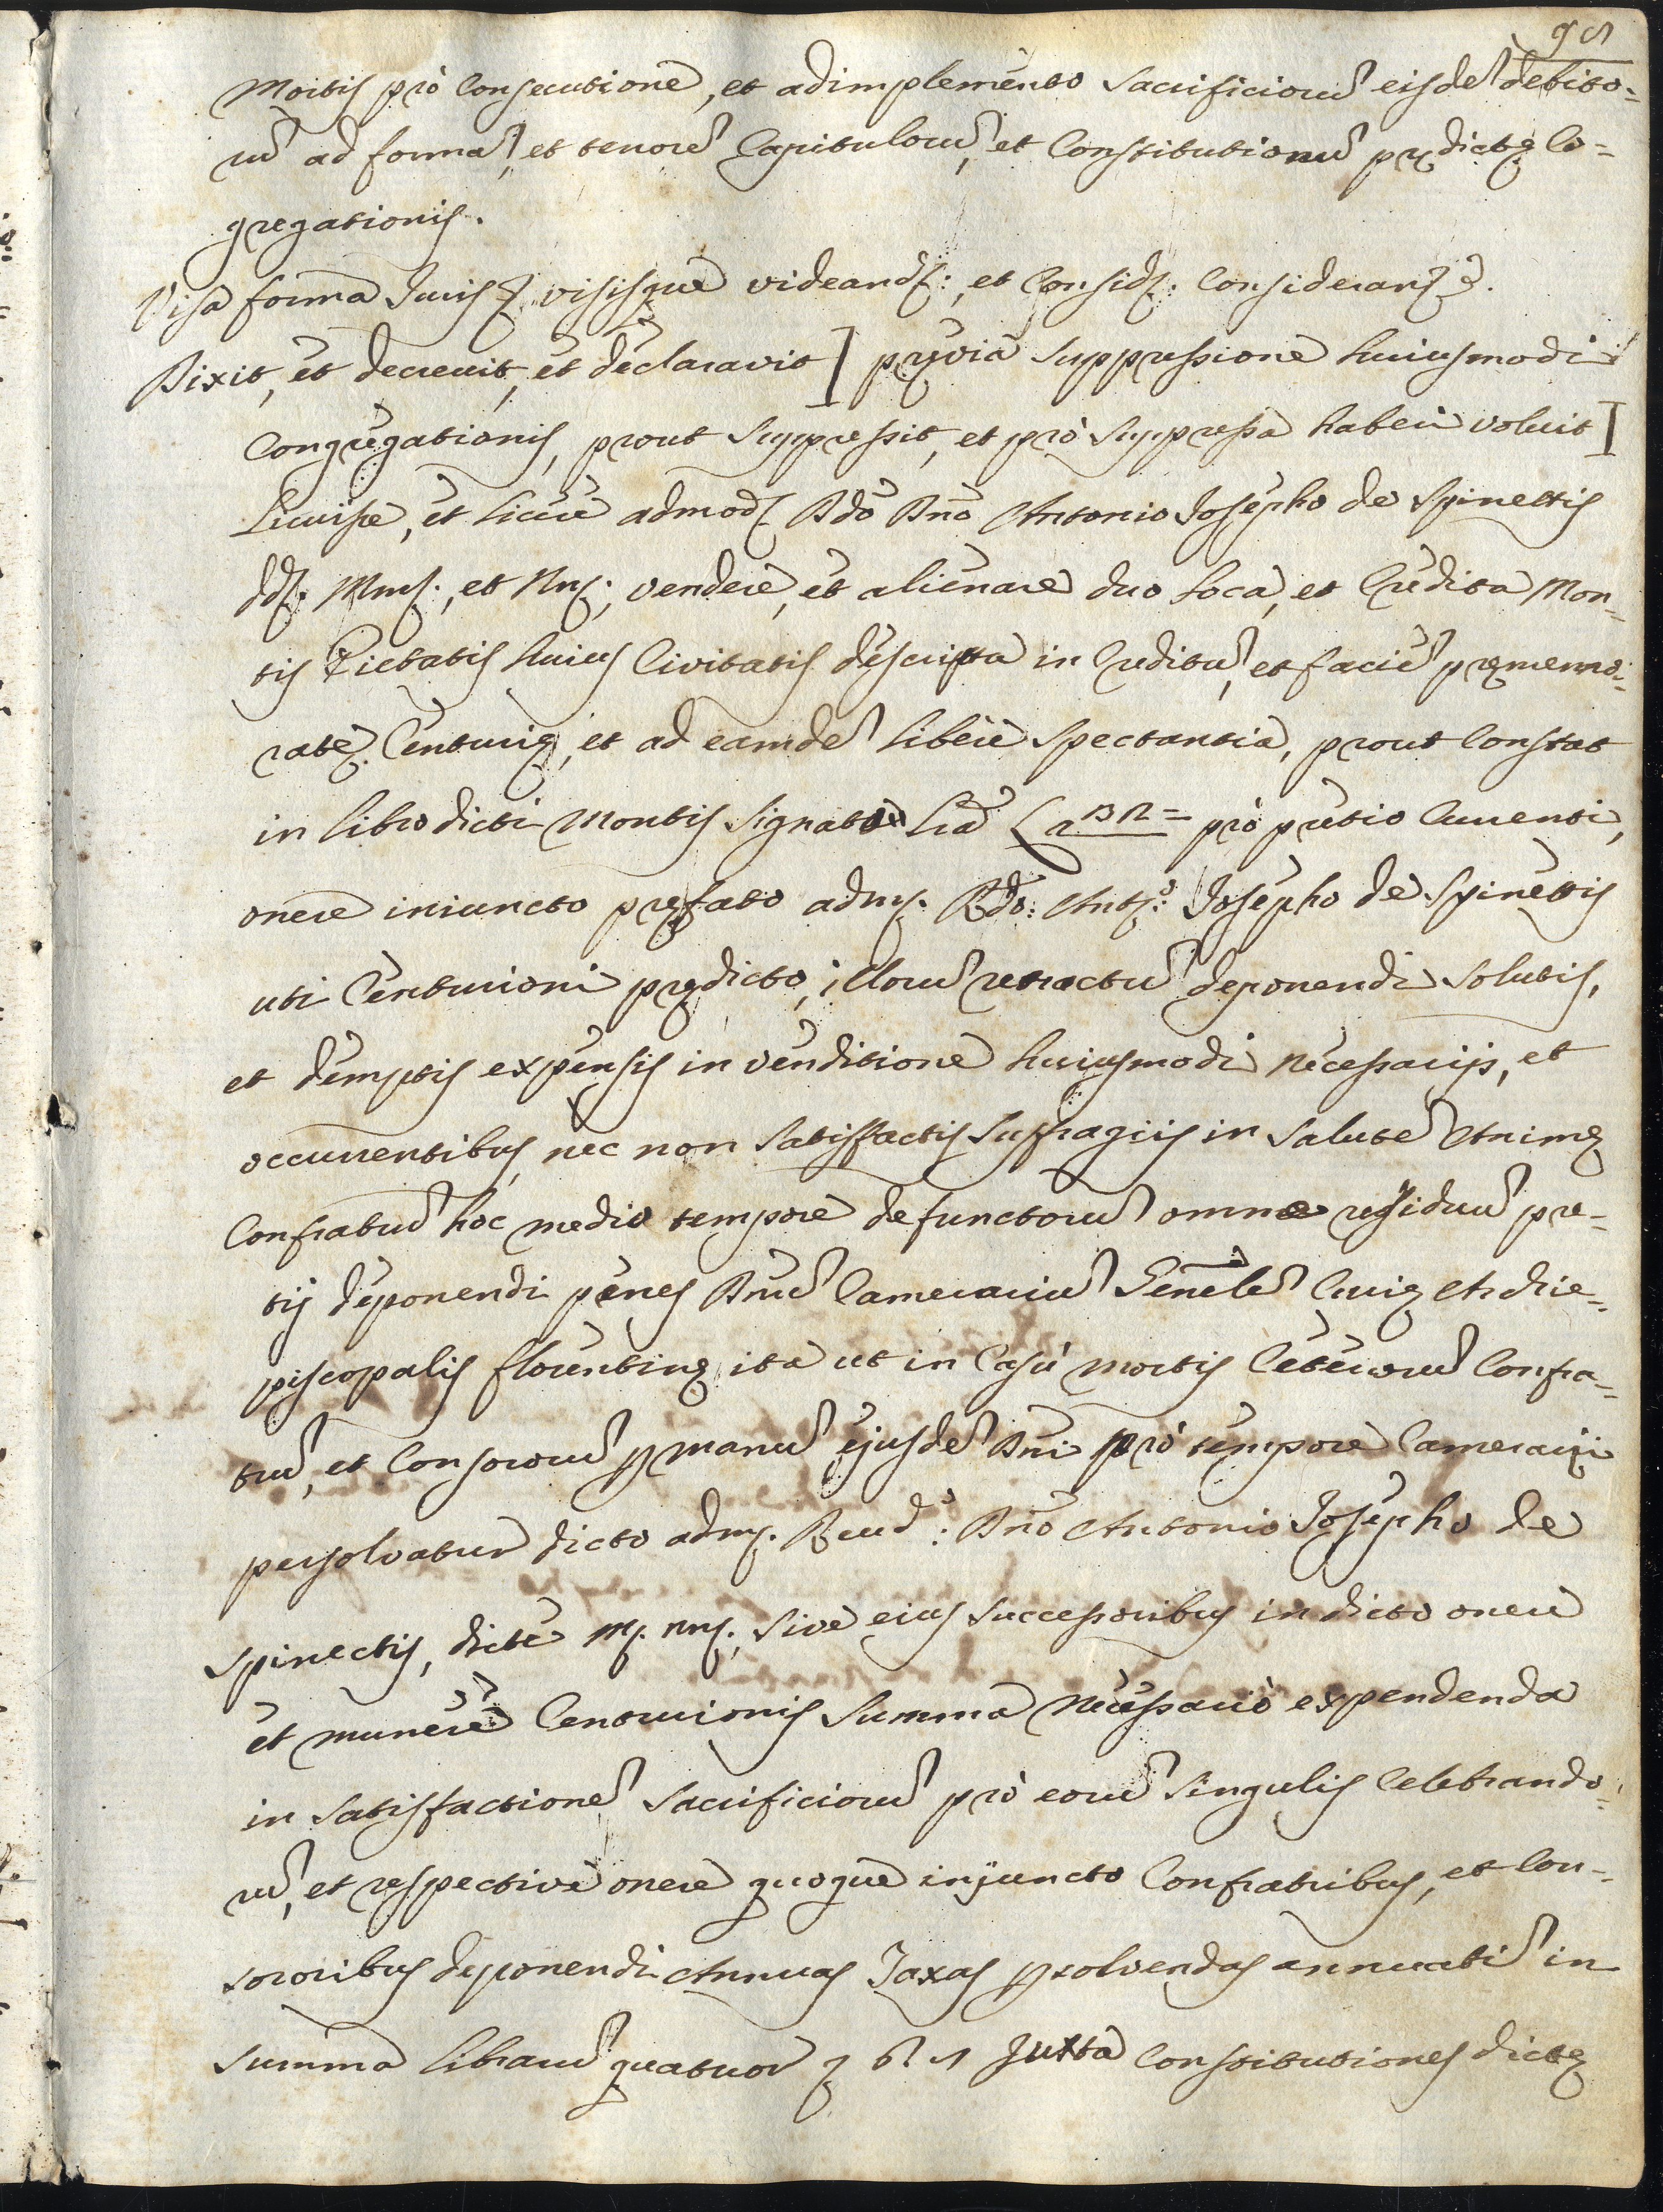 98
Mortis prò consecutione, et adimplemento sacrificioru͂ eisde͂ debito=
ru͂ ad forma͂, et tenore͂ Capituloru͂, et Constitutionu͂ prędictę Co=
gregationis.
Visa forma Juris visisque videand: et Consid: Consideran
Dixit, et decrevit, et declaravit [pręvia suppressione huiusmodi
Congregationis, prout suppressit, et prò suppressa haberi voluit]
Licuisse, et licere admod Rdo Dno Antonio Josepho de Spinettis
vendere, et alienare duo loca, et Credita Mon=
tis Pietatis huius Civitatis descripta in Creditu͂, et facie͂ pręmemo=
ratę Centurię, et ad eamde͂ liberè spectantia, prout constat
in libro dicti Montis signato Lra prò pretio currenti,
onere iniuncto pręfato adm. Rdo: Anto: Josepho de Spinettis
uti Centurioni prędicto, illoru͂ retractu͂ deponendi solutis,
et demptis expensis in venditione huiusmodi necessarijs, et
occurrentibus, nec non satisfactis suffragiis in salute͂ Animę
Confratru͂ hoc medio tempore defunctoru͂ omne residuu͂ pre=
tij deponendi penes Dnu͂ Camerariu͂ Genele͂ Curię Archie=
piscopalis florentinę, ita ut in Casù mortis Ceteroru͂ Confra=
tru͂, et Consororu͂ p manu͂ ejusde͂ Dni prò tempore Camerarij
persolvatur dicto adm. Revd: Dno Antonio Josepho de
Spinectis, dicte m. nn., sive eius successoribus in dicto onere
et munere Centurionis summa necessariò expendenda
in satisfactione͂ sacrificioru͂ prò eoru͂ singulis celebrando=
ru͂, et respectivè onere quoque injuncto Confratribus, et Con=
sororibus deponendi Annuas Taxas psolvendas annuati͂ in
summa libraru͂ quatuor juxta Constitutiones dictę